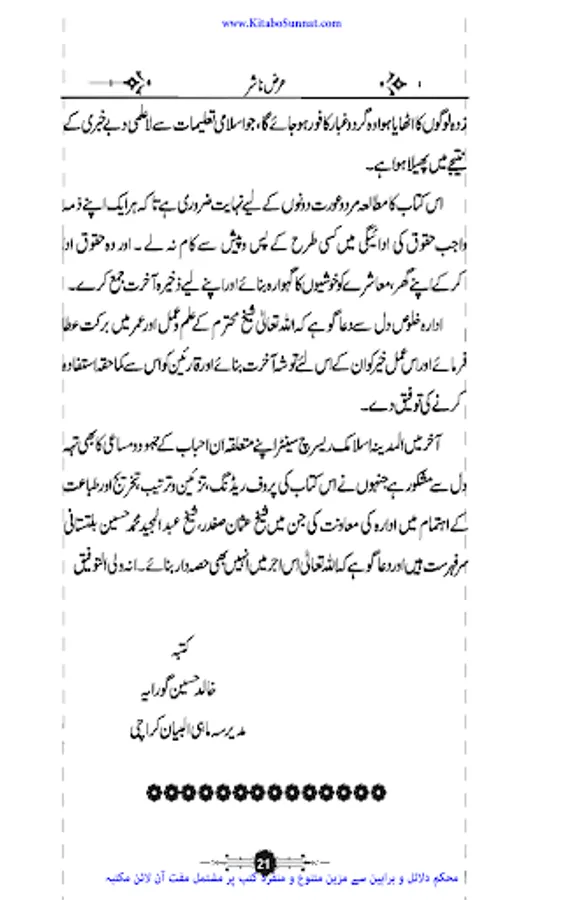 www.KitaboSunnat.com
عرض ناشر
زدہ لوگوں کا اٹھایا ہوا وہ گرد و غبار کافور ہو جائے گا، جو اسلامی تعلیمات سے لاعلمی و بے خبری کے
نتیجے میں پھیلا ہوا ہے۔
اس کتاب کا مطالعہ مرد و عورت دونوں کے لیے نہایت ضروری ہے تاکہ ہر ایک اپنے ذمہ
واجب حقوق کی ادائیگی میں کسی طرح کے پس و پیش سے کام نہ لے۔ اور وہ حقوق ادا
کر کے اپنے گھر، معاشرے کو خوشیوں کا گہوارہ بنائے اور اپنے لیے ذخیرہ آخرت جمع کرے۔
ادارہ خلوص دل سے دعا گو ہے کہ اللہ تعالیٰ شیخ محترم کے علم و عمل اور عمر میں برکت عطا
فرمائے اور اس عمل خیر کو ان کے لئے توشہ آخرت بنائے اور قارئین کو اس سے کما حقہ استفادہ
کرنے کی توفیق دے۔
آخر میں المدینہ اسلامک ریسرچ سینٹر اپنے متعلقہ ان احباب کے جہود و مساعی کا بھی تہہ
دل سے مشکور ہے جنہوں نے اس کتاب کی پروف ریڈنگ، تزئین و ترتیب، تخریج اور طباعت
کے اہتمام میں ادارہ کی معاونت کی جن میں شیخ عثمان صفدر، شیخ عبدالمجید محمد حسین بلتستانی
سرفہرست ہیں اور دعا گو ہے کہ اللہ تعالیٰ اس اجر میں انہیں بھی حصہ دار بنائے۔ انہ ولی التوفیق
کتبہ
خالد حسین گورایہ
مدیر سہ ماہی البیان کراچی
21
محکم دلائل و براہین سے مزین متنوع و منفرد کتب پر مشتمل مفت آن لائن مکتبہ